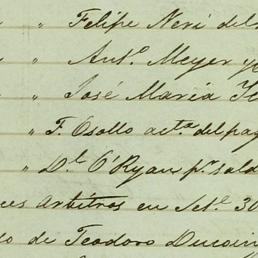 " " Felipe Neri del
" " Ant.º Meyer y
" " José Maria
" F. Osollo acta. del pag
" D.l O'Ryan p.r sald
ces arbitros en Set.e 30
o de Teodoro Ducoin